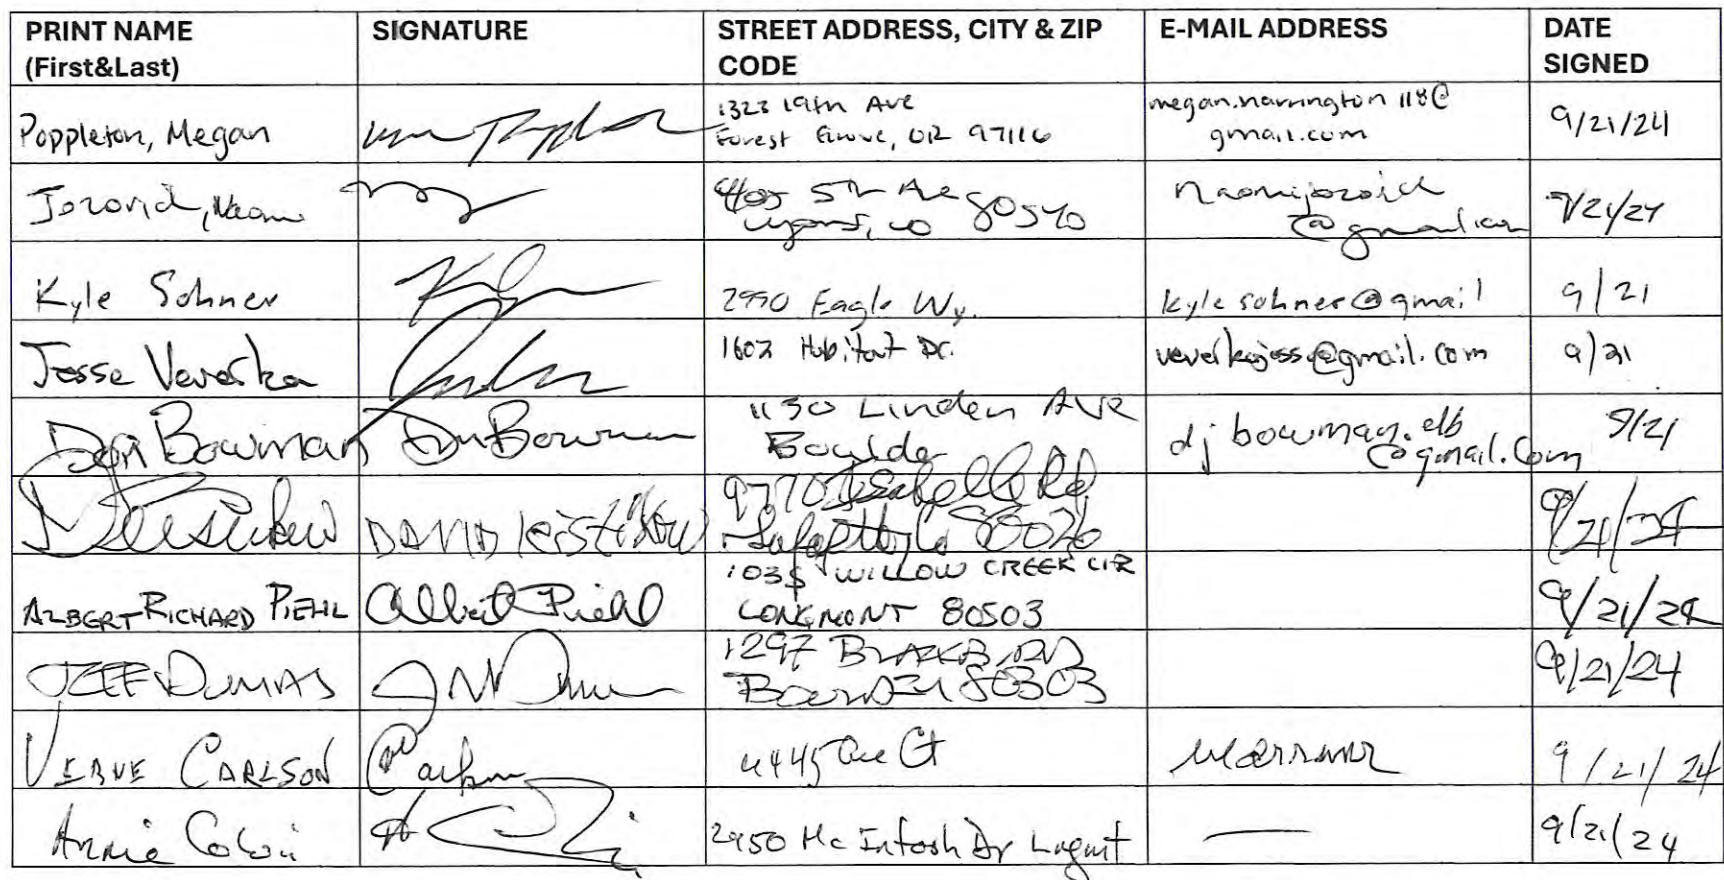 PRINT NAME (First&Last) SIGNATURE STREET ADDRESS, CITY & ZIP CODE E-MAIL ADDRESS DATE SIGNED
Poppleton, Megan 1323 19th Ave Forest Grove, OR 97116 megan.narrington 118@ gmail.com 9/21/24
Jozovich, Naomi 5th Ave Lyons, CO 80540 naomijozovich @gmail.com 9/21/24
Kyle Sohner 2990 Eagle Wy. kylesohner@gmail 9/21
Jesse Veverka 1602 Habitat Dr. veverkajesse@gmail.com 9/21
Don Bowman Don Bowman 1130 Linden AVE Boulder dj bowman.elb @gmail.com 9/21
DAVID 9770 Isabelle Rd Lafayette Co 80026 9/21/24
ALBERT RICHARD PIEHL Albert Piehl 1035 WILLOW CREEK CIR LONGMONT 80503 9/21/24
JEFF DUMAS 1297 BLACKBIRD BOULDER 80303 9/21/24
VERVE CARLSON Carlson 4445 Ct 9/21/24
Annie Colvin 2950 McIntosh Dr Longmont — 9/21/24